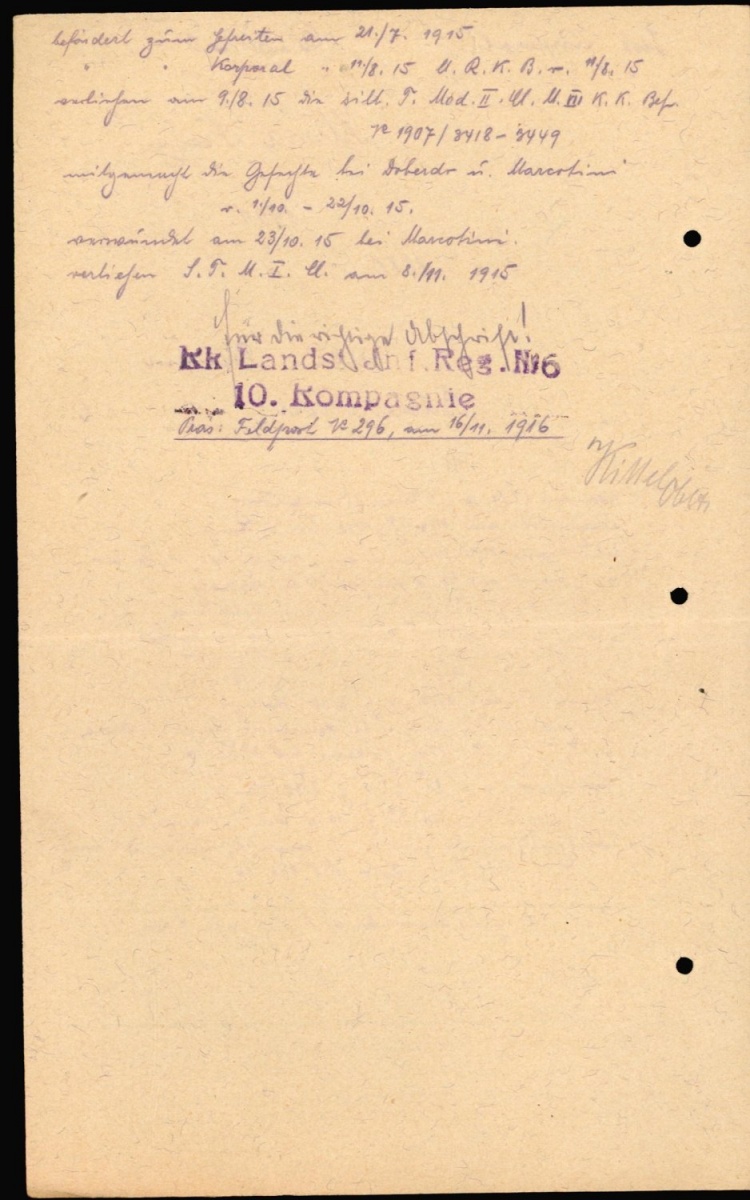 befördert zum Gefreiten am 21./7. 1915
" " Korporal " 11/8. 15 U. R. K. B. v. 11/8. 15
verliehen am 9./8. 15 die silb. T. Med. II. Kl. M. III K. K. Bef.
№ 1907/3418-3449
mitgemacht die Gefechte bei Doberdo u. Marcotini
v. 1./10. - 22/10. 15.
verwundet am 23/10. 15 bei Marcotini.
verliehen S. T. M. I. Kl. am 8./11. 1915
für die richtige Abschrift!
Kk Landst. Inf. Reg. №6
10. Kompagnie
Präs: Feldpost № 296, am 16/11. 1916